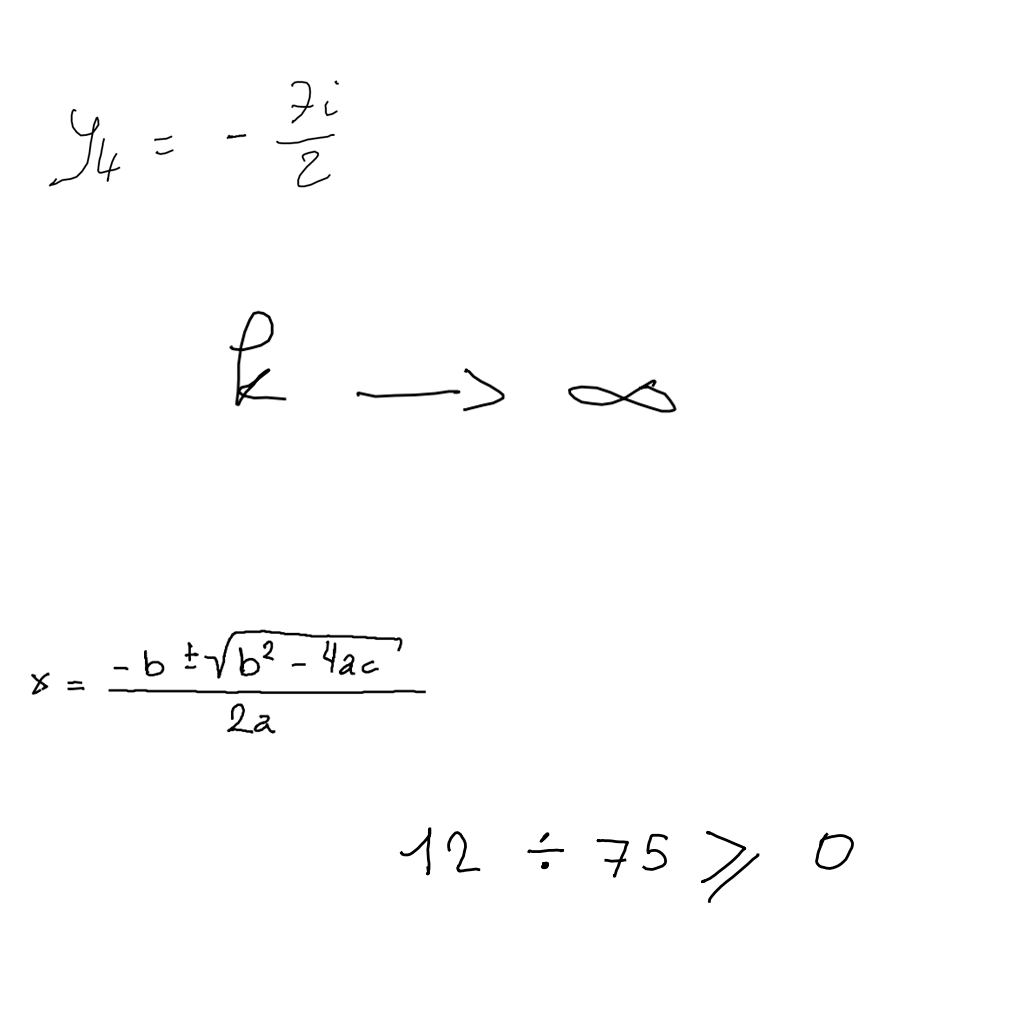 y₄ = - 7i/2
k → ∞
x = (-b ± √(b² - 4ac))/2a
12 ÷ 75 ⩾ 0